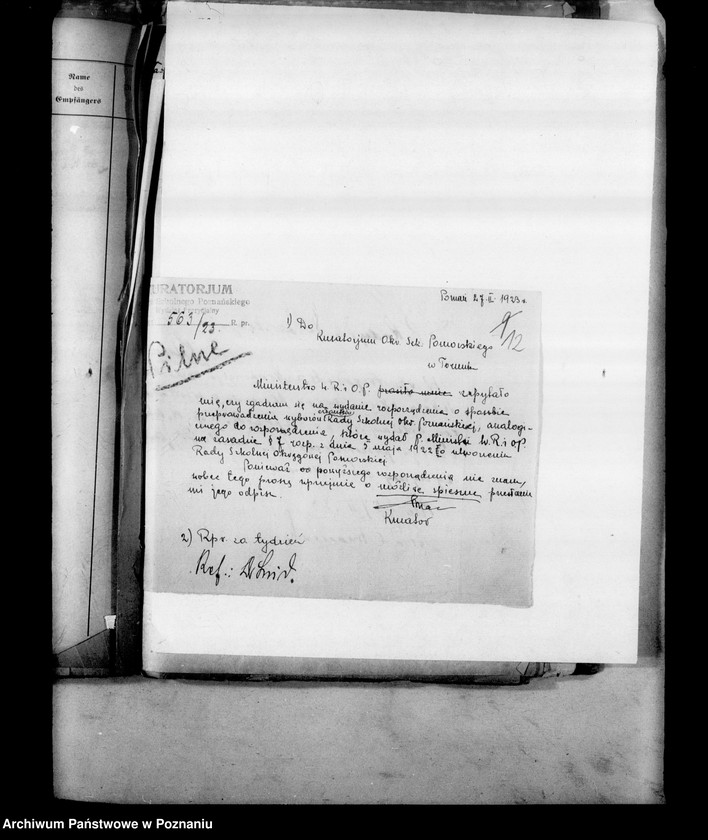 Name
des
Empfängers
KURATORJUM
Szkolnego Poznańskiego
563/23 R. pr.
Pilne
Poznań 27.II. 1923 r.
9/12
1) Do
Kuratorjum Okr. Szk. Pomorskiego
w Toruniu
Ministerstwo W. R. i O. P. zapytało
mię, czy zgadzam się na wydanie rozporządzenia o sposobie
przeprowadzenia wyborów członków Rady Szkolnej Okr. Poznańskiej, analogi-
cznego do rozporządzenia, które wydał P. Minister W. R. i O. P.
na zasadzie § 7 rozp. z dnia 5 maja 1922 o utworzeniu
Rady Szkolnej Okręgowej Pomorskiej.
Ponieważ powyższego rozporządzenia nie znam,
wobec tego proszę uprzejmie o możliwie spieszne przesłanie
mi jego odpisu.
Kurator
2) Rpr. za tydzień
Ref.: Dr
Archiwum Państwowe w Poznaniu